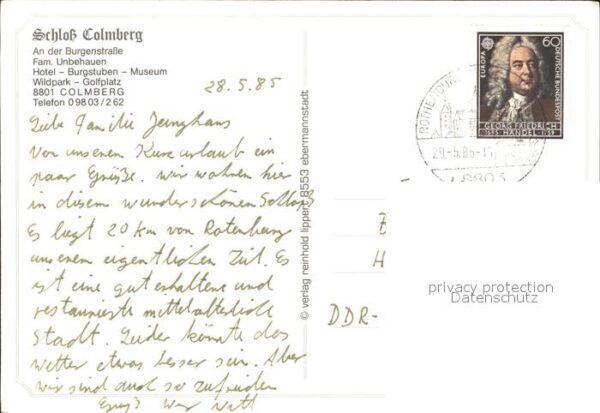 Schloß Colmberg
An der Burgenstraße
Fam. Unbehauen
Hotel – Burgstuben – Museum
Wildpark – Golfplatz
8801 COLMBERG
Telefon 0 98 03 / 2 62
28.5.85
Liebe Familie Junghans
Von unserem Kurzurlaub ein
paar Grüße. Wir wohnen hier
in diesem wunderschönen Schloß
Es liegt 20 km von Rotenburg
unserem eigentlichen Ziel. Es
ist eine gut erhaltene und
restaurierte mittelalterliche
Stadt. Leider könnte das
Wetter etwas besser sein. Aber
wir sind auch so zufrieden
Gruß
© verlag reinhold lippert 8553 ebermannstadt
EUROPA
60
DEUTSCHE BUNDESPOST
GEORG FRIEDRICH
1685 HÄNDEL 1759
29.-5.85-
8803
B
H
DDR-
privacy protection
Datenschutz